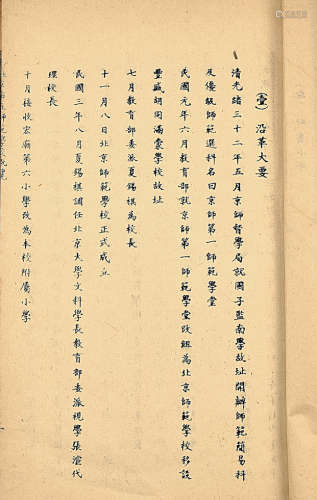 (壹) 沿革大要
清光緒三十二年五月京師督學局就國子監南學故址開辦師範簡易科
及優級師範選科名曰京師第一師範學堂
民國元年六月教育部就京師第一師範學堂改組為北京師範學校移設
豐盛胡同滿蒙學校故址
七月教育部委派夏錫祺為校長
十一月八日北京師範學校正式成立
民國三年八月夏錫祺調任北京大學文科學長教育部委派視學張渲代
理校長
十月接收宏廟第六小學改為本校附屬小學